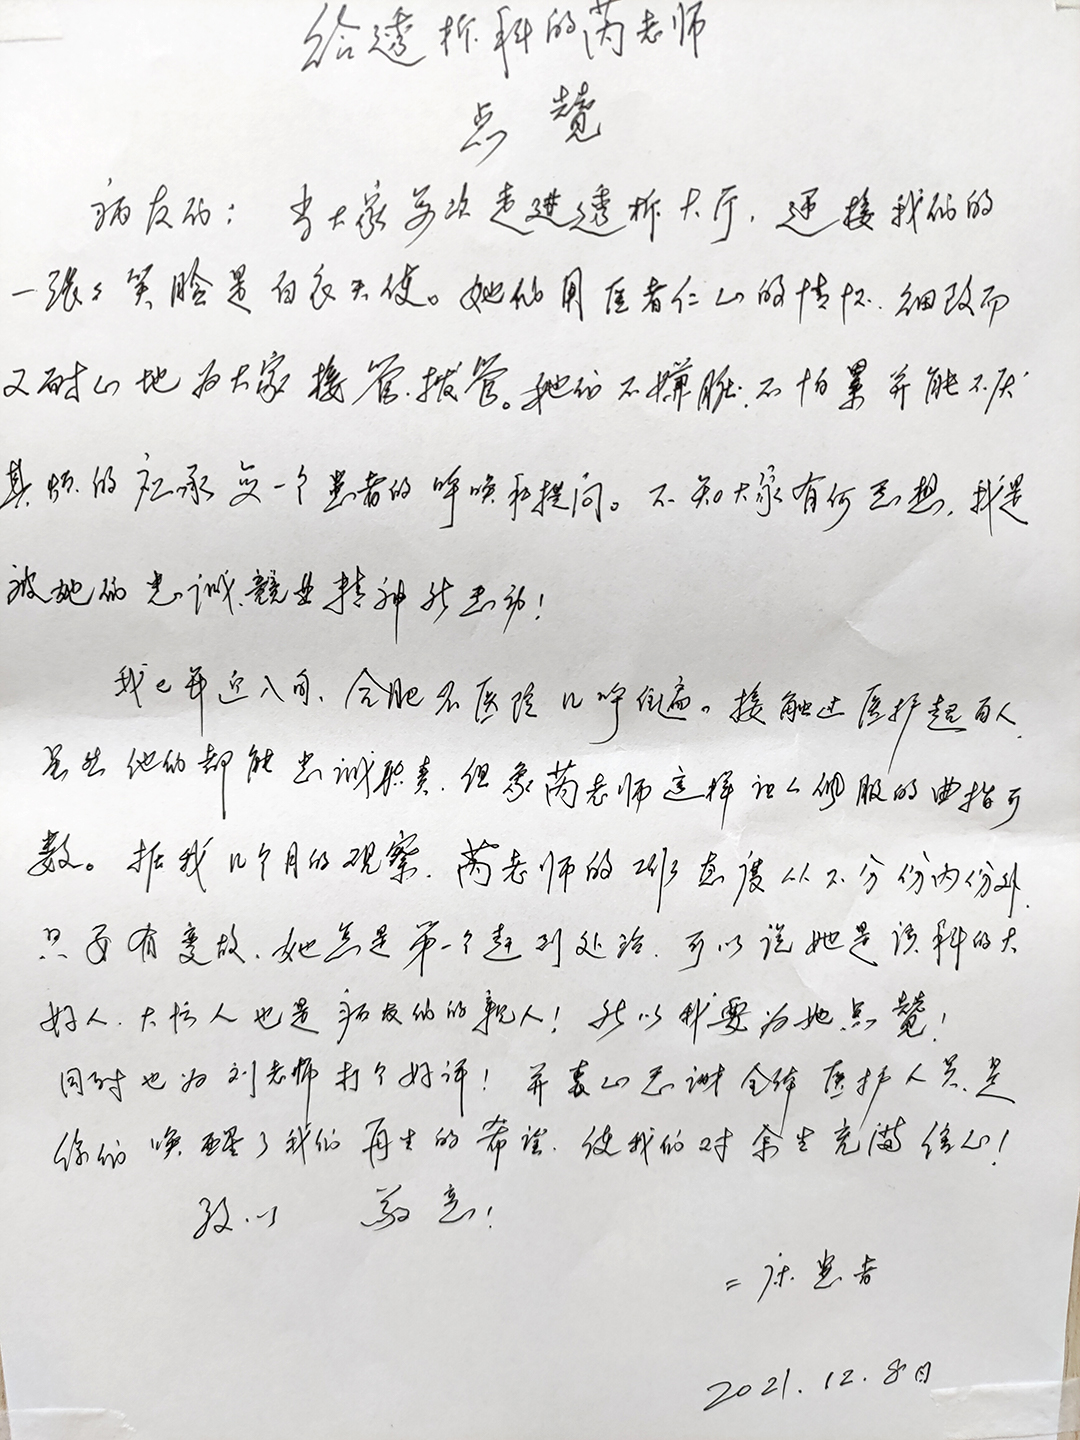 给透析科的芮老师
点赞
病友们：当大家每次走进透析大厅，迎接我们的
一张张笑脸是白衣天使。她们用医者仁心的情怀、细致而
又耐心地为大家接管、拔管。她们不嫌脏、不怕累并能不厌
其烦的应承每一个患者的呼唤和提问。不知大家有何感想，我是
被她们忠诚、兢业精神所感动！
我已年近八旬、合肥各医院几乎住遍。接触过医护超百人，
虽然他们都能忠诚职责，但象芮老师这样让人佩服的曲指可
数。据我几个月的观察，芮老师的工作态度从不分份内份外，
只要有变故、她总是第一个赶到处治，可以说她是该科的大
好人、大忙人也是病友们的亲人！所以我要为她点赞！
同时也为刘老师打个好评！并衷心感谢全体医护人员，是
你们唤醒了我们再生的希望、使我们对余生充满信心！
致以 敬意！
二床患者
2021.12.8日